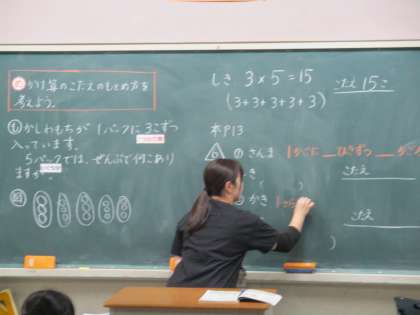 め かけ算のこたえのもとめ方を
考えよう。
も かしわもちが 1パックに 3こずつ
入っています。
5パックでは、ぜんぶで何こあり
ますか。
図
しき 3×5=15
こたえ 15こ
(3+3+3+3+3)
本P13
6 ① さんま 1かごに ひきずつ かご
こたえ
かき
こたえ